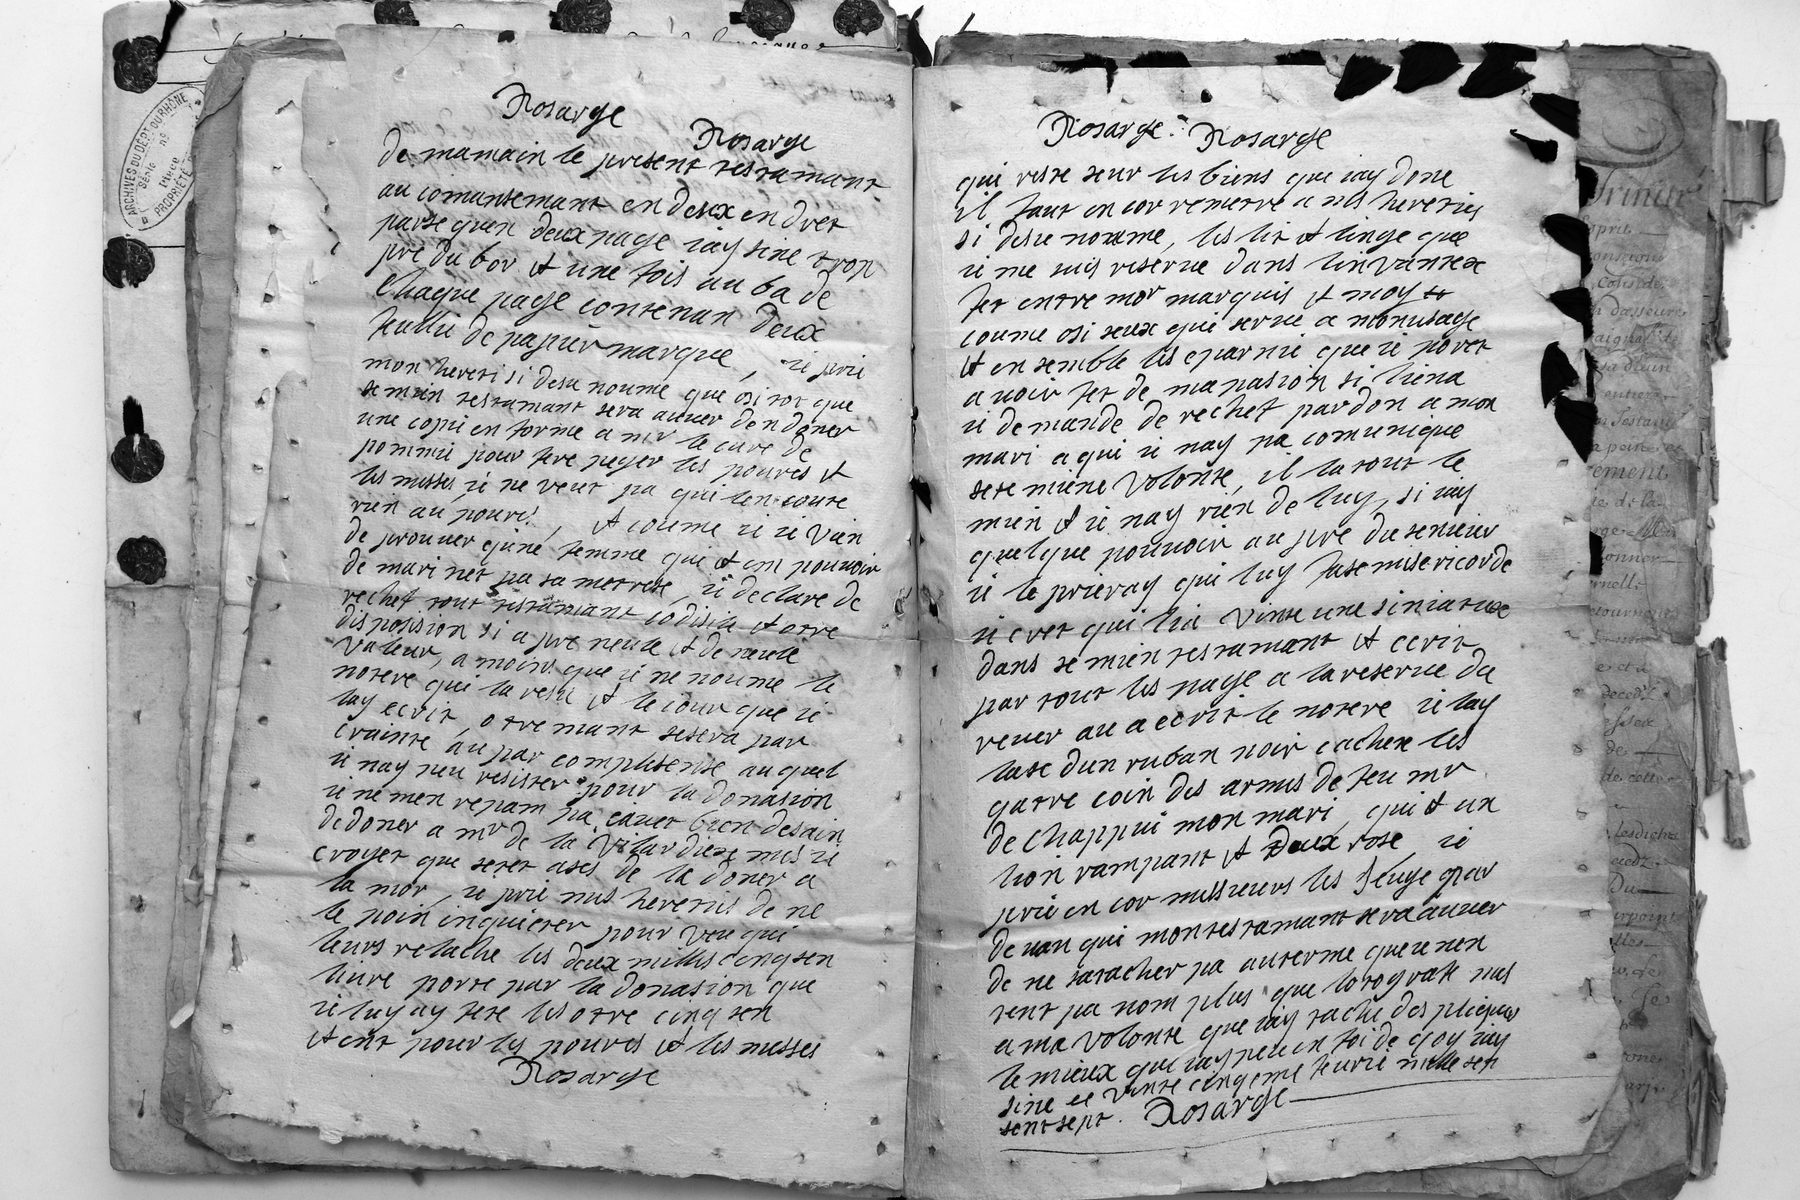 Rosarge
Rosarge
de mamain le present testamant
au comansemant en deux endret
parse quan deux page iay sine trop
pre du bor et une fois au ba de
chaque page contenan deux
feullie de papier marque, ie prie
mon hereti si desu noume que osi tot que
se mien testamant sera auuer den doner
une copie en forme a mr le cure de
pommie pour fere peyer les pouures et
les messes ie ne veut pa qui len coute
rien au pouure, et coume ie ie vien
de prouuer qune femme qui et en pouuoir
de mari net pa sa metrese, ie declare de
rechef tout testamant codisile et otre
disposision si apre neulle et de neulle
valeur, a moins que ie ne noume le
notere qui la resu et le iour que ie
lay ecrit, otremant sesera par
crainte au par complesense auquel
ie nay peu resister pour la donasion
ie ne men repam pa, cauet bien desain
dedoner a mr de la Vilardiere mes ie
croyet que seret ases de la doner a
la mor, ie prie mes heretiés de ne
le poin inquieter pour veu qui
leurs relache les deux milles cinq sen
liure porte par la donasion que
ie luy ay fete les otre cinq sen
et ent pour les pouures et les messes
Rosarge
Rosarge Rosarge
qui reste seur les biens que iay done
il faut encor remetre a mes heretiés
si desu noume, les lit et linge que
ie me suis reserue dans linvantere
fet entre mor marquis et moy et
coume osi seux qui serue a monusage
et ensemble les eparnie que ie poret
auoir fet de ma pasion si liena
ie demande de rechef pardon a mon
mari a qui ie nay pa comunique
sete miene volonte, il la tout le
mien et ie nay rien de luy, si iay
quelque pouuoir aupre du senieur
ie le prieray qui luy fase misericorde
ie cret qui liä vinte une siniature
dans se mien testamant et ecrit
par tout les page a la reserue du
reuer au a ecrit le notere ie lay
lase dun ruban noir cachete les
qatre coin des armes de feu mr
de chappui mon mari, qui et un
lion rampant et deux rose, ie
prie encor messieurs les Jeuge par
deuan qui mon testamant sera auuer
de ne satacher pa auterme que ie nen
tent pa nom plus que lotografe mes
a ma volonte que iay tache des plieques
le mieux que iay peu en foi de qoy iay
sine ce vinte cinqeme feurie mille set
sent sept. Rosarge
ARCHIVES DU DÉPT DU RHÔNE
Série
No
Pièce
PROPRIÉTÉ
Trinité